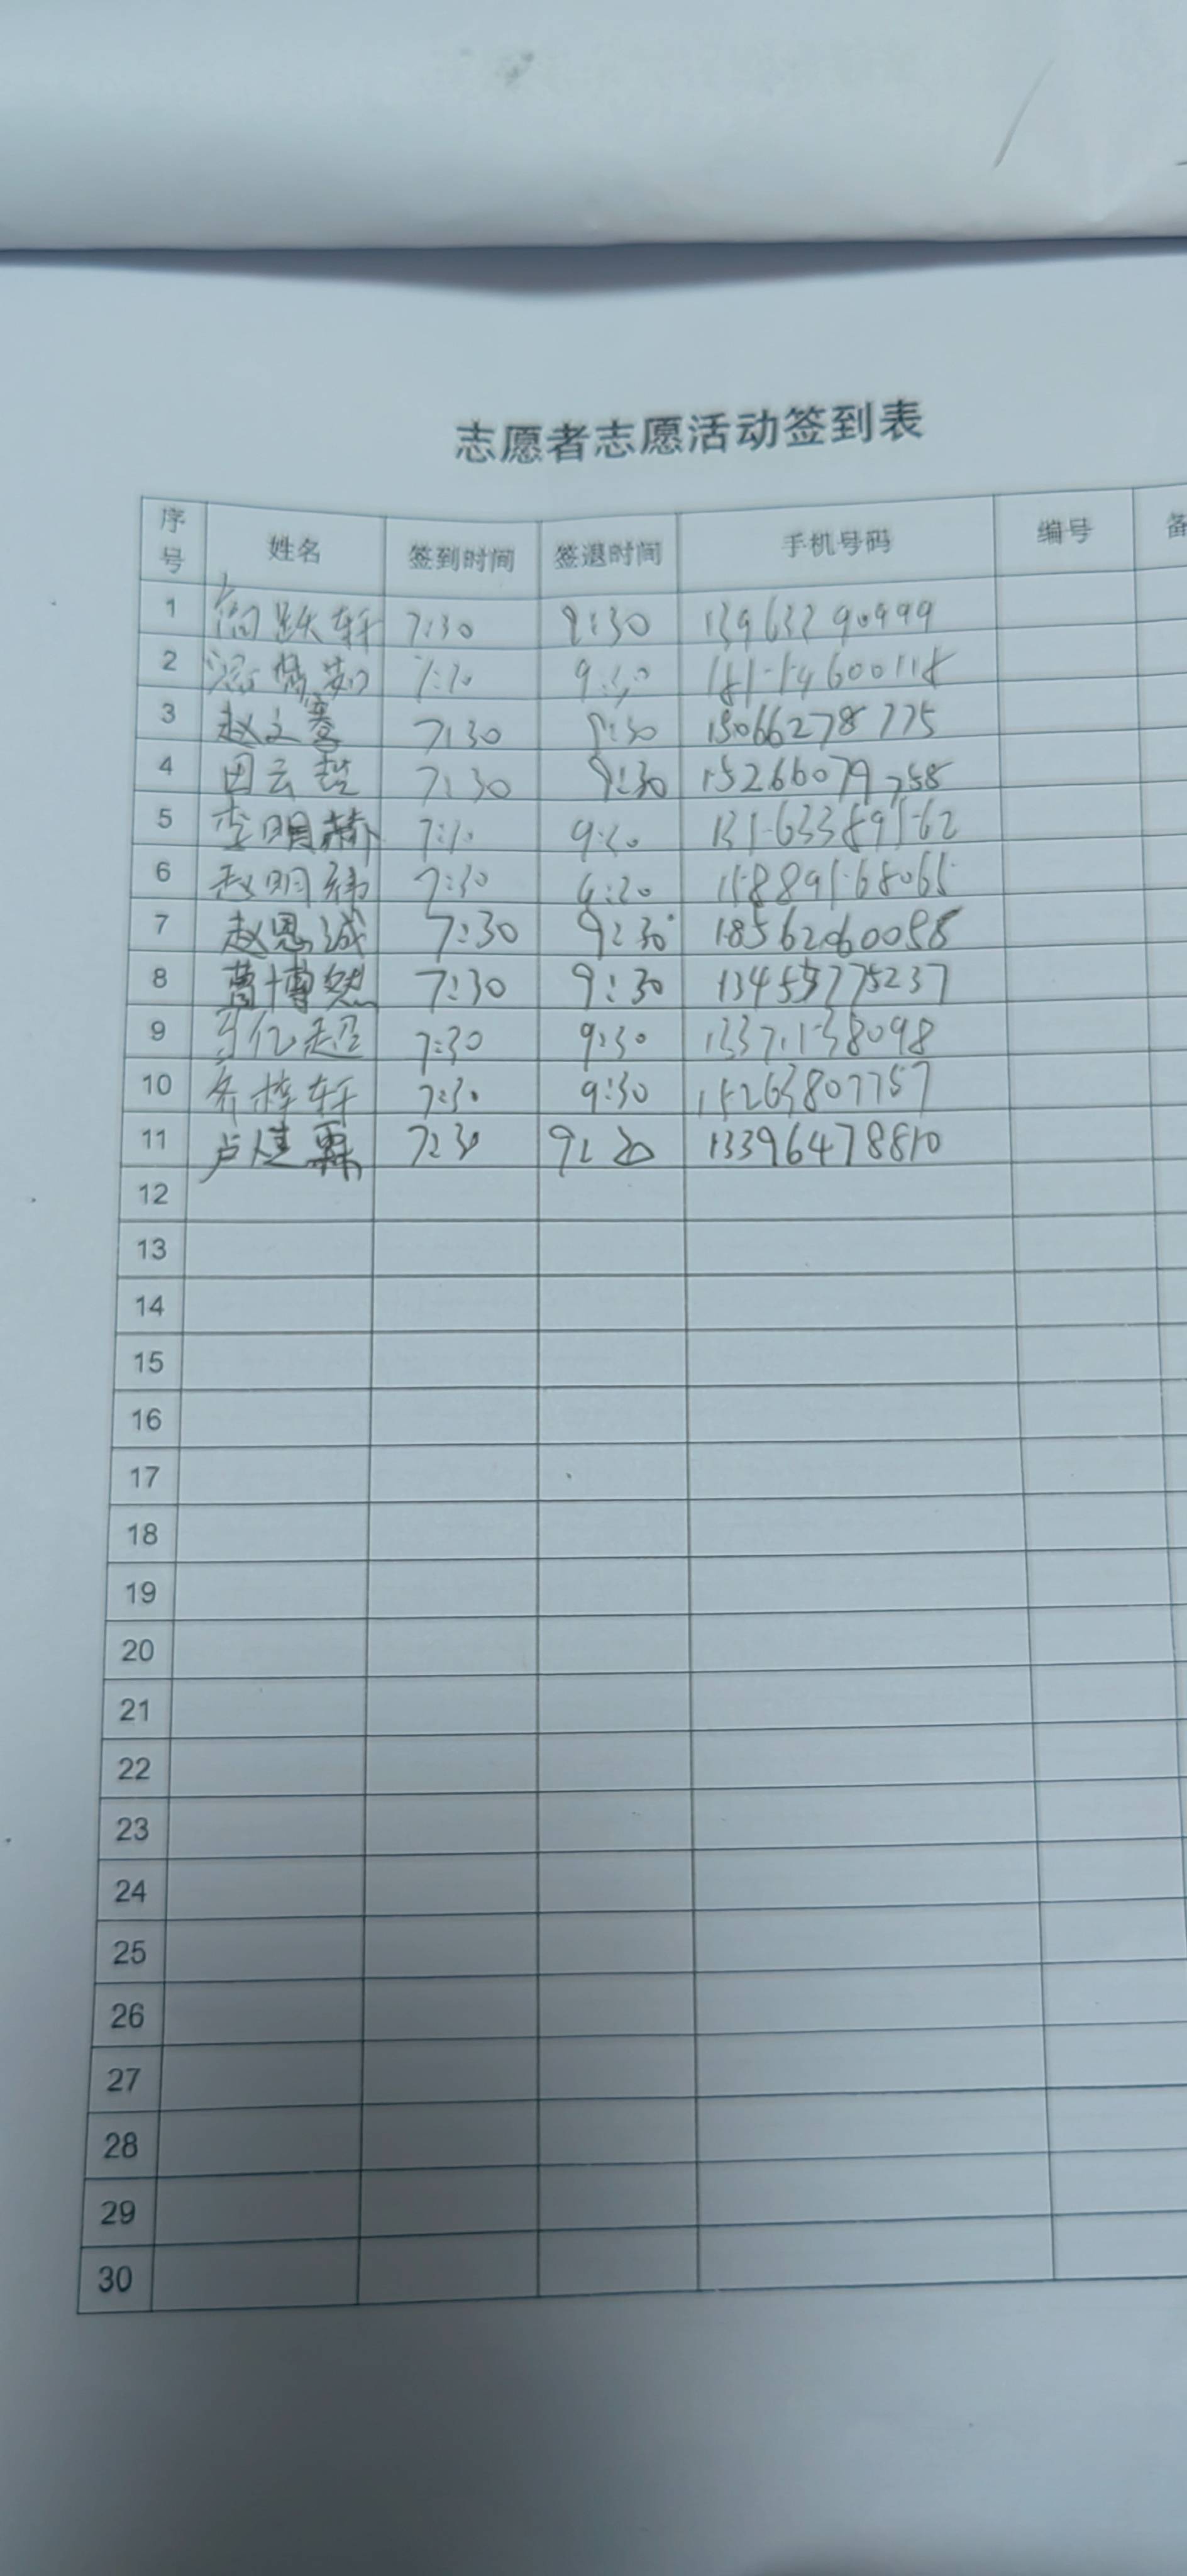 志愿者志愿活动签到表
序号 姓名 签到时间 签退时间 手机号码 编号 备
1 跃轩 7:30 9:30 13963290999
2 9:30
3 赵文骞 7:30 9:30 15066278775
4 田云哲 7:30 9:30 15266079758
5 李明赫 7:30 9:30 13163389562
6 赵明祎 7:30 9:30 15889568065
7 赵恩诚 7:30 9:30 18562060058
8 曹博然 7:30 9:30 13455775237
9 亿超 7:30 9:30 13371138098
10 乔梓轩 7:30 9:30 15263807757
11 卢煜霖 7:30 9:30 13396478810
12
13
14
15
16
17
18
19
20
21
22
23
24
25
26
27
28
29
30